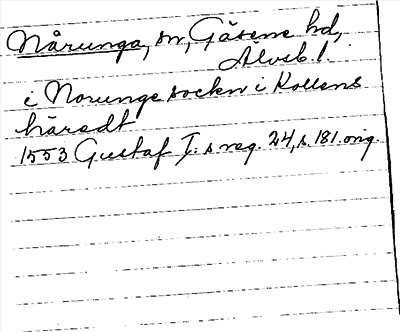 Nårunga, sn, Gäsene hd,
Älvsb. l.
i Norunge socken i Kollens
häredt
1553 Gustaf I:s reg. 24, s. 181. orig.